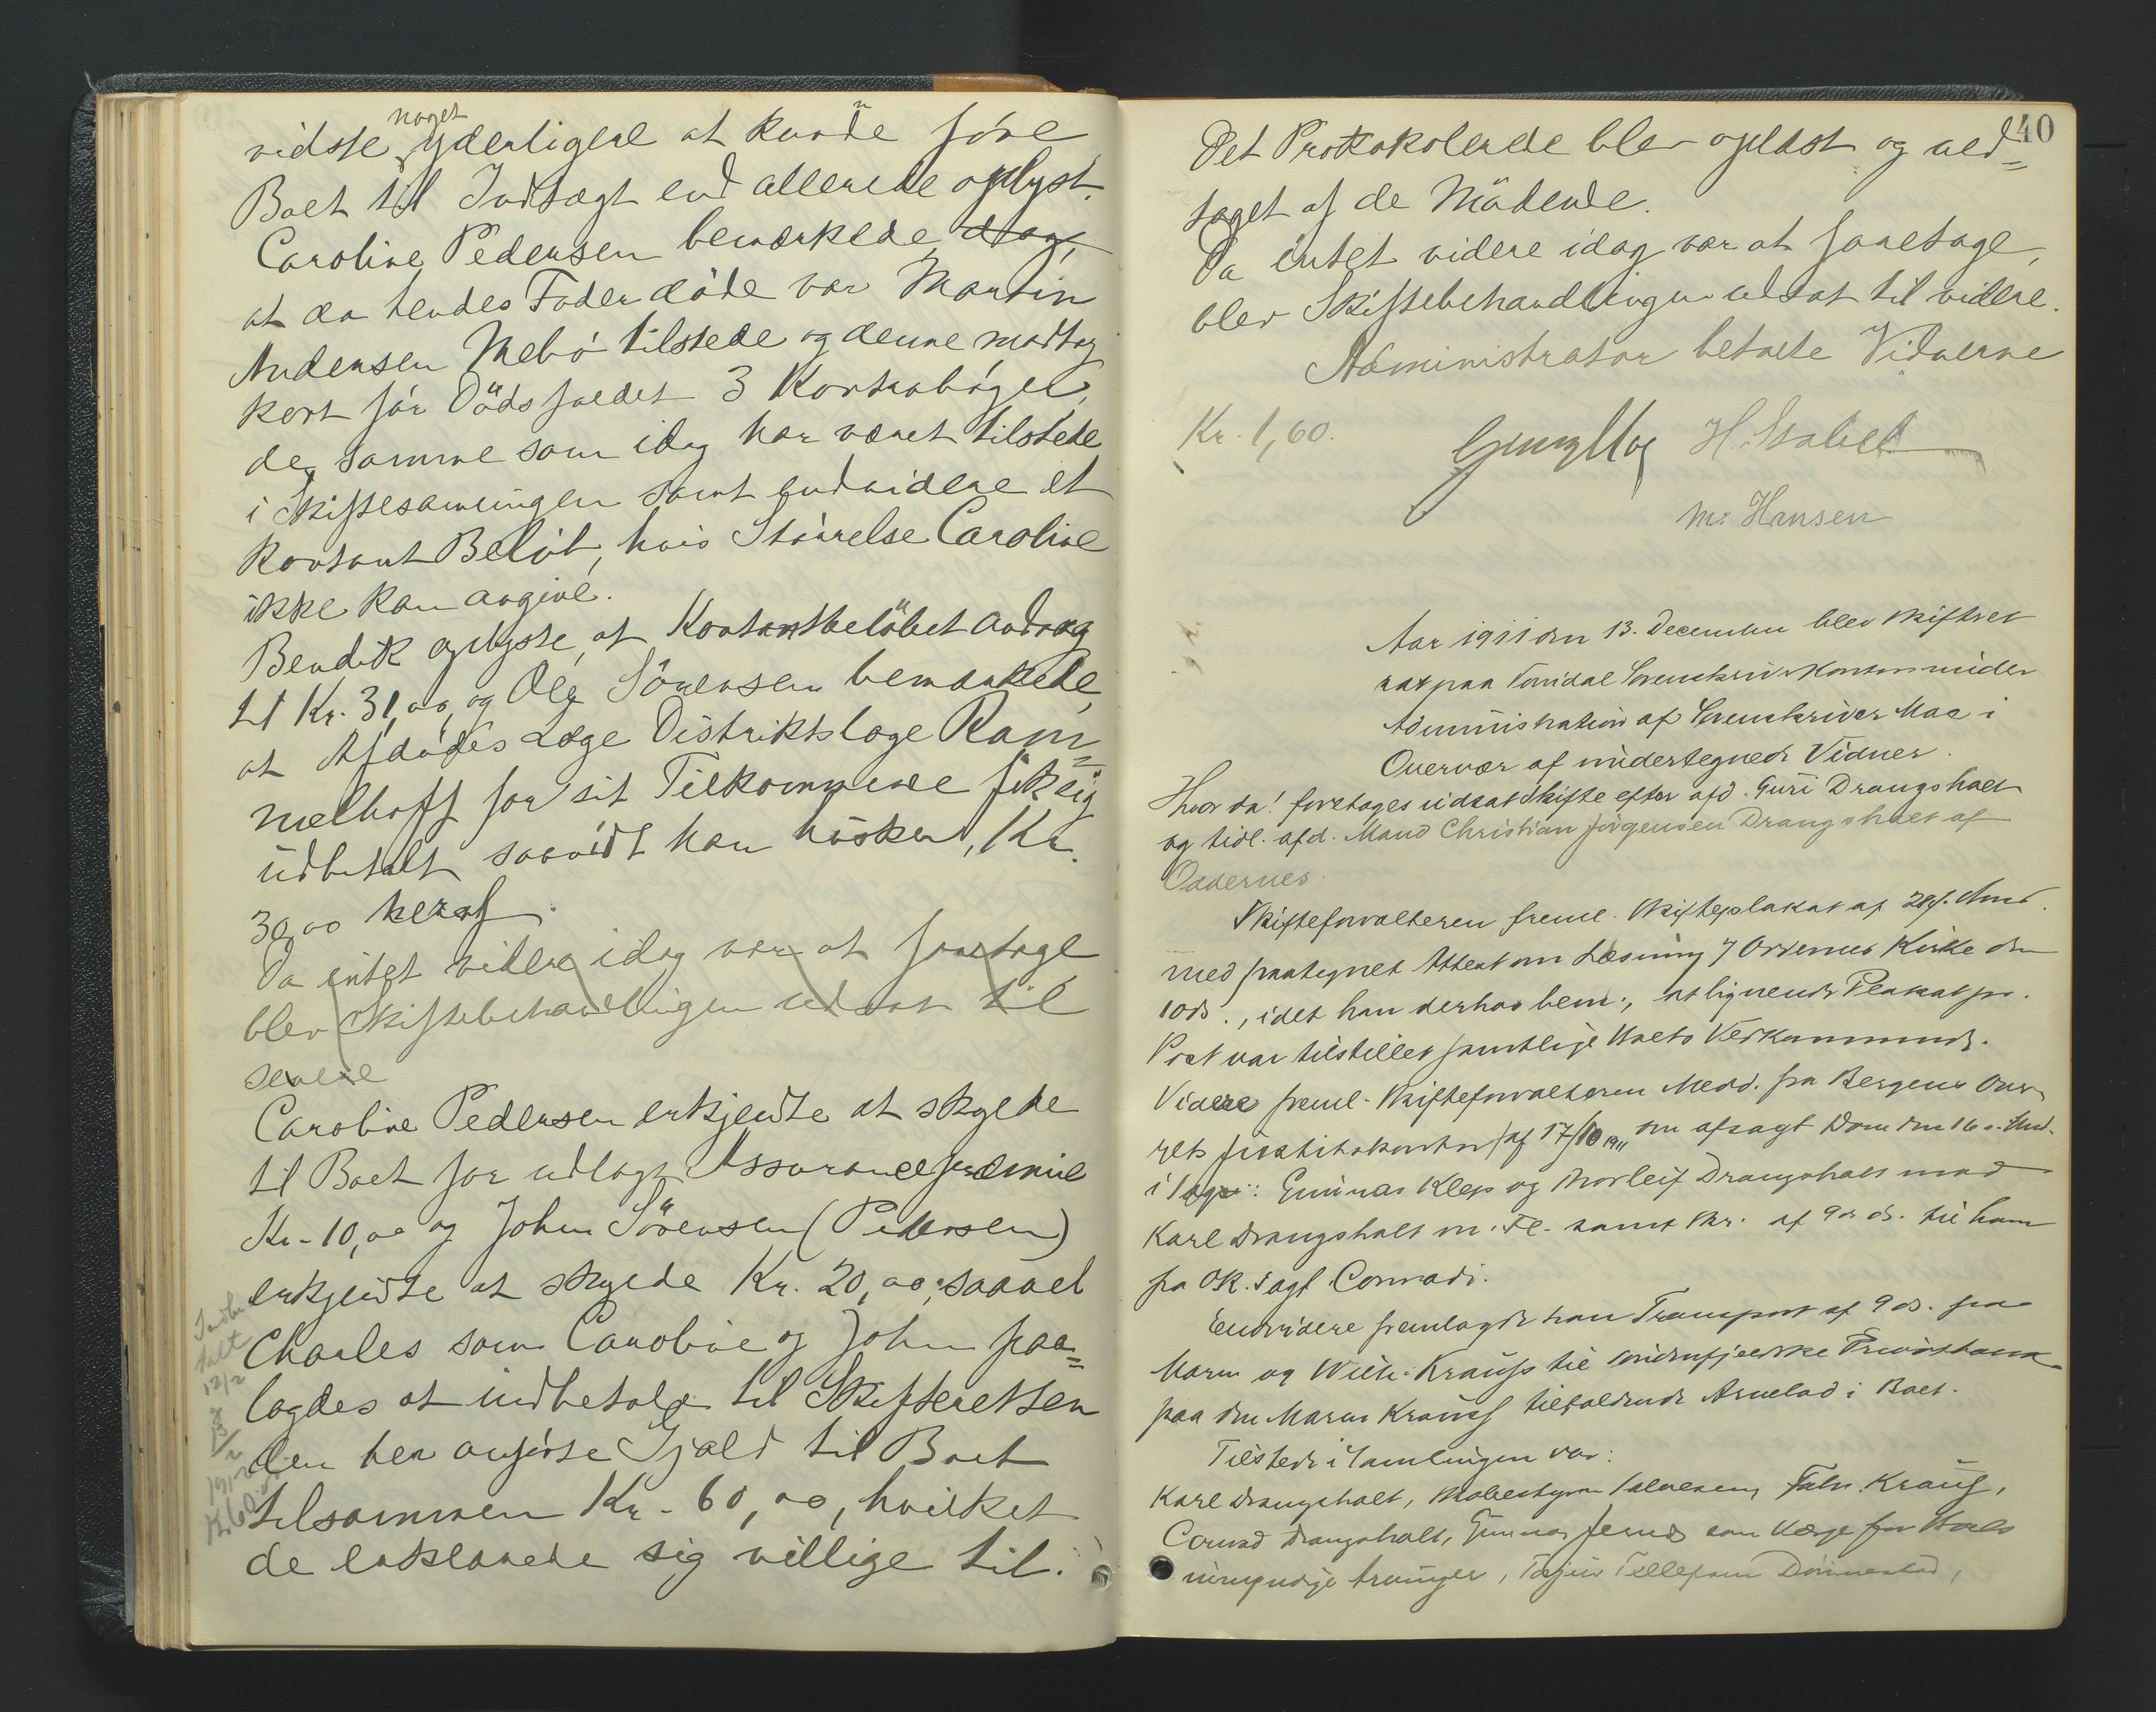 vidste noget yderligere at kunne före
Boet til Indtægt end allerede oplyst.
Caroline Pedersen bemærkede idag,
at da hendes Fader döde var Martin
Andersen Mebö tilstede og denne modtog
kort för Dödsfaldet 3 Kontraböger,
de samme som idag har været tilstede
i Skiftesamlingen samt endvidere et
kontant Belöb, hvis Störrelse Caroline
ikke kan angive.
Bendik oplyste, at Kontantbelöbet androg
til Kr. 31,00, og Ole Sörensen bemærkede,
at Afdödes Læge Distriktslæge Ram=
melhoff for sit Tilkommende fik sig
udbetalt saavidt han husker, Kr.
30,00 heraf.
Da intet videre idag var at foretage
blev Skiftebehandlingen udsat til
senere
Caroline Pedersen erkjendte at skylde
til Boet for udlagt Assurancepræmie
Kr. 10,00 og John Sörensen (Pedersen)
erkjendte at skylde Kr. 20,00, saavel
Charles som Caroline og John paa=
lagdes at indbetale til Skifteretten
den her anförte Gjæld til Boet
tilsammen Kr. 60,00, hvilket
de erklærede sig villige til.
Indbe
talt
12/2
&
13/2
1912
40
Det Protokolerede blev oplæst og ved=
taget af de Mödende.
Da intet videre idag var at foretage,
blev Skiftebehandlingen udsat til videre.
Administrator betalte Vidnerne
Kr. 1,60.
H. Stabel
M. Hansen
Aar 1911 den 13. December blev Skifteret
sat paa Torridal Sorenskriverkontor under
Administration af Sorenskriver Moe i
Overvær af undertegnede Vidner.
Hvor da! foretages udsat Skifte efter afd. Guri Drangsholt
og tidl. afd. Mand Christian Jörgensen Drangsholt af
Oddernes.
Skifteforvalteren freml. Skifteplakat af 28 f. Mnd.
med paategnet Attest om Læsning v/ Oddernes Kirke den
10 ds., idet han derhos bem., at lignende Plakat pr.
Post var tilstillet samtlige Boets Vedkommende.
Videre freml. Skifteforvalteren Medd. fra Bergens Over-
rets Justitskontor af 17/10 1911 om afsagt Dom den 16 s. Md.
i Sag: Gunnar Klep og Thorleif Drangsholt mod
Karl Drangsholt m. Fl. samt Skr. af 9 ds. til ham
fra OR. Sagf. Conradi.
Endvidere fremlagde han Transport af 9 ds. fra
Maren og Wilh. Krauss til Privatbank
paa den Maren Krauss tilfaldende Arvelod i Boet.
Tilstede i Samlingen var:
Karl Drangsholt, Krauss,
Conrad Drangsholt, Gunnar som Værge for Boets
umyndige Arvinger, Torjus Tellefsen Dönnestad,